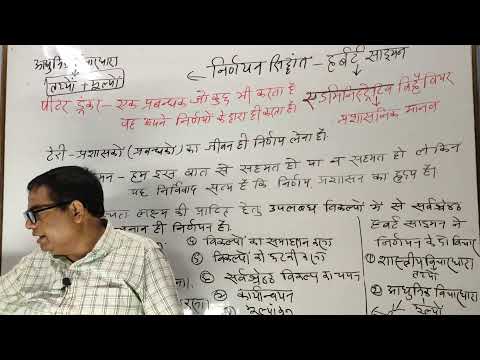 आधुनिक विचारधारा
तथ्यों + मूल्यों
निर्णयन सिद्धांत - हर्बर्ट साइमन
पीटर ड्रकर - एक प्रबन्धक जो कुछ भी करता है
वह अपने निर्णयों के द्वारा ही करता है।
एडमिनिस्ट्रेटिव बिहेवियर
प्रशासनिक मानव
टेरी - प्रशासकों (प्रबन्धकों) का जीवन ही निर्णय लेना है।
मन - हम इस बात से सहमत हो या न सहमत हो लेकिन
यह निर्विवाद सत्य है कि निर्णय प्रशासन का हृदय है।
लक्ष्य की प्राप्ति हेतु उपलब्ध विकल्पों में से सर्वश्रेष्ठ
ही निर्णय है।
विकल्पों का समाधान
विकल्पों
सर्वश्रेष्ठ विकल्प का चयन
कार्यान्वयन
मूल्यांकन
हर्बर्ट साइमन ने
निर्णयन के दो विचार
① शास्त्रीय विचारधारा
तथ्यों
② आधुनिक विचारधारा
मूल्यों